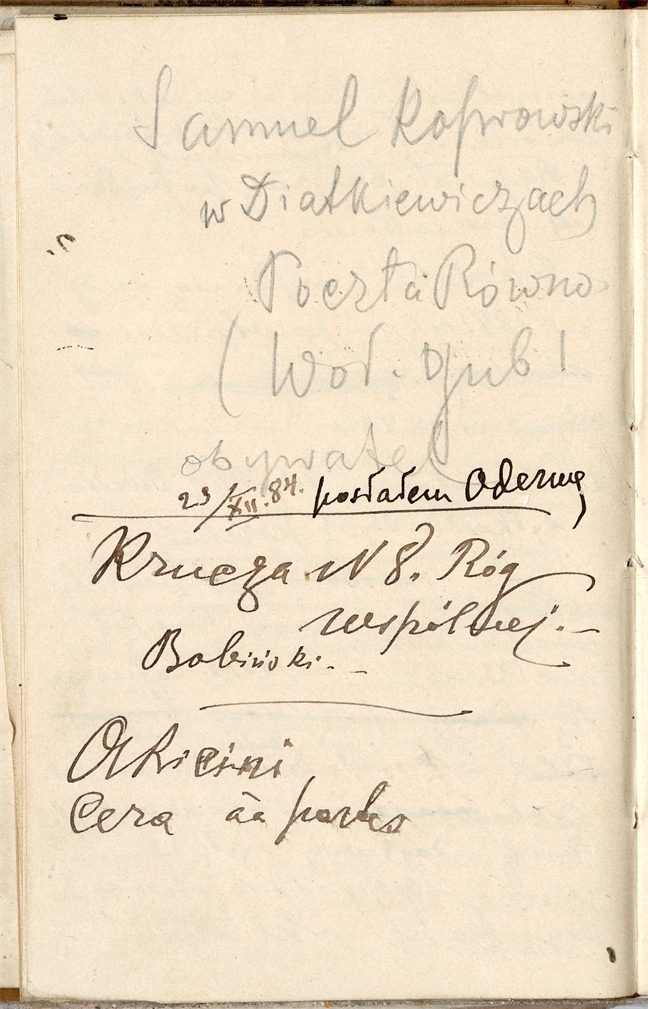 Samuel Kosprowski
w Diatkiewiczach
Poczta Równo
(Woł. gub)
obywatel
23/XII.84. posłałem Odezwę
Krucza N 8. Róg
Wspólnej. –
Babiński. –
Ol. Ricini
Cera āā partes